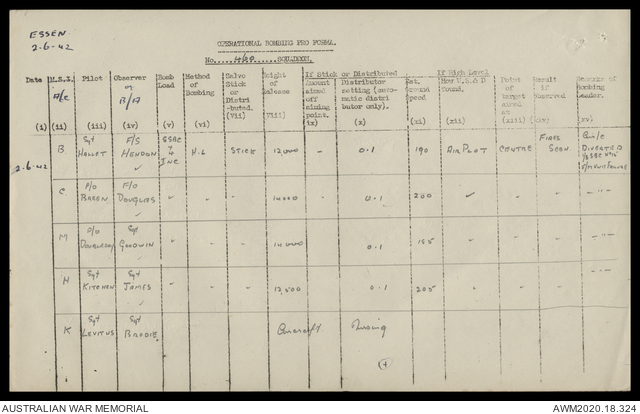 ESSEN
2-6-42
OPERATIONAL BOMBING PRO FORMA.
No.....460.....SQUADRON.
Date M.S.I. A/c Pilot Observer or B/A Bomb Load Method of Bombing Salvo Stick or Distri-buted. Height of release If Stick or Distributed Amount aimed off aiming point. Distributor setting (auto-matic distributor only). Ground Speed If High Level How W.S & D found. Point of target aimed at Result if observed Remarks of Bombing Leader.
(i) (ii) (iii) (iv) (v) (vi) (vii) (viii) (ix) (x) (xi) (xii) (xiii) (xiv) (xv)
2-6-42 B Sgt HALLET F/S HENDON INC H.L STICK 12,000 - 0.1 190 AIR PLOT CENTRE FIRES SEEN.
C P/O BREEN P/O DOUGLAS " " " 14000 - 0.1 200 " " " - " -
M P/O Sgt GOODWIN " " " 14,000 0.1 185 " " " - " -
H Sgt KITCHEN Sgt JAMES " " " 12,500 0.1 205 " " " - " -
K Sgt LEVITUS Sgt BRODIE. Aircraft Missing
AUSTRALIAN WAR MEMORIAL
AWM2020.18.324